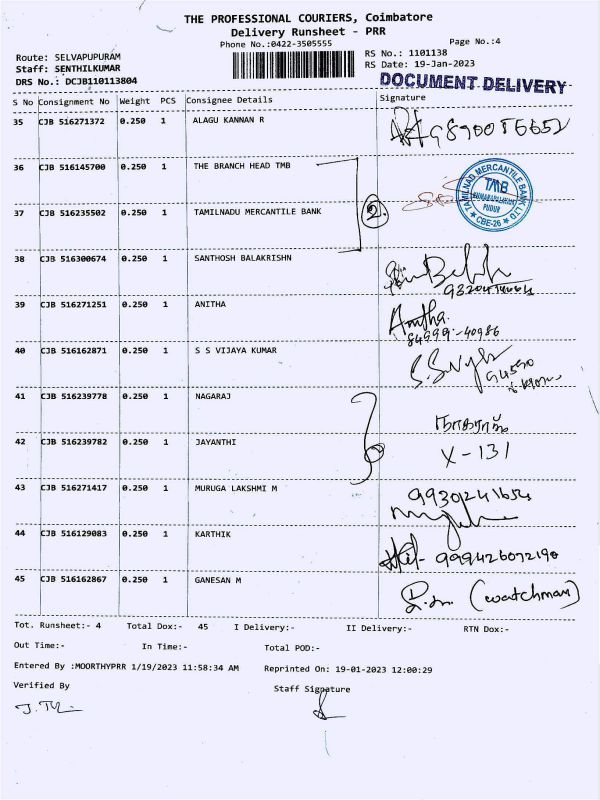 THE PROFESSIONAL COURIERS, Coimbatore
Delivery Runsheet - PRR
Phone No.:0422-3505555
Page No.:4
Route: SELVAPUPURAM
RS No.: 1101138
Staff: SENTHILKUMAR
RS Date: 19-Jan-2023
DRS No.: DCJB110113804
DOCUMENT DELIVERY
S No Consignment No Weight PCS Consignee Details Signature
35 CJB 516271372 0.250 1 ALAGU KANNAN R
36 CJB 516145700 0.250 1 THE BRANCH HEAD TMB
TAMILNAD MERCANTILE BANK LTD
TMB
PUDUR
CBE-26
37 CJB 516235502 0.250 1 TAMILNADU MERCANTILE BANK
2.
38 CJB 516300674 0.250 1 SANTHOSH BALAKRISHN
39 CJB 516271251 0.250 1 ANITHA
Anitha.
84999-40986
40 CJB 516162871 0.250 1 S S VIJAYA KUMAR
41 CJB 516239778 0.250 1 NAGARAJ
நாகராஜ்
42 CJB 516239782 0.250 1 JAYANTHI
X-131
43 CJB 516271417 0.250 1 MURUGA LAKSHMI M
44 CJB 516129083 0.250 1 KARTHIK
45 CJB 516162867 0.250 1 GANESAN M
(watchman)
Tot. Runsheet:- 4 Total Dox:- 45 I Delivery:- II Delivery:- RTN Dox:-
Out Time:- In Time:- Total POD:-
Entered By :MOORTHYPRR 1/19/2023 11:58:34 AM Reprinted On: 19-01-2023 12:00:29
Verified By Staff Signature